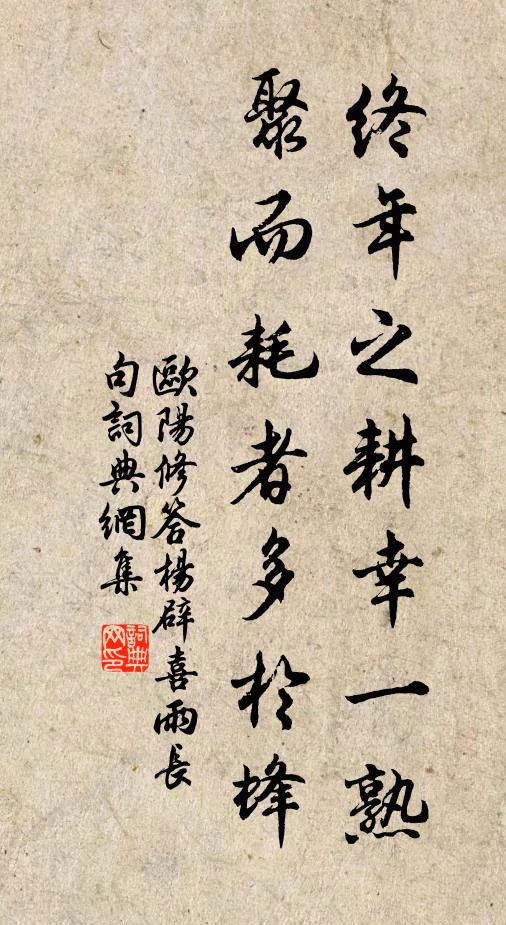 終年之耕幸一熟
聚而耗者多於蜂
歐陽修答楊辟喜雨長
句詞典網集
詞典網印